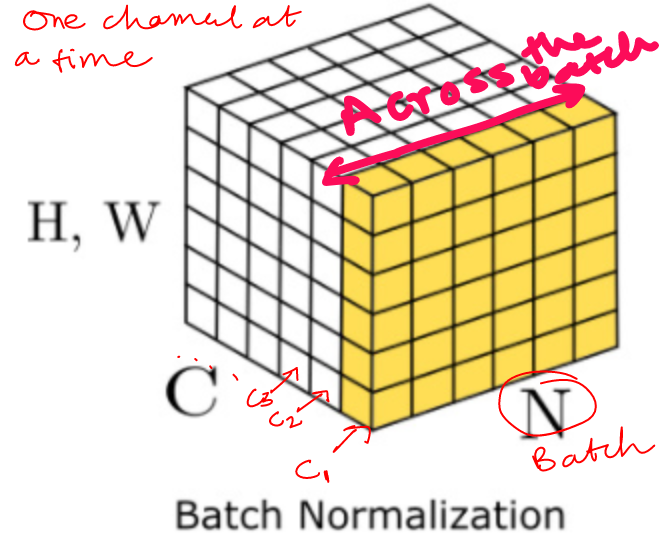 One channel at
a time
Across the
batch
H, W
C
C3
C2
C1
N
Batch
Batch Normalization